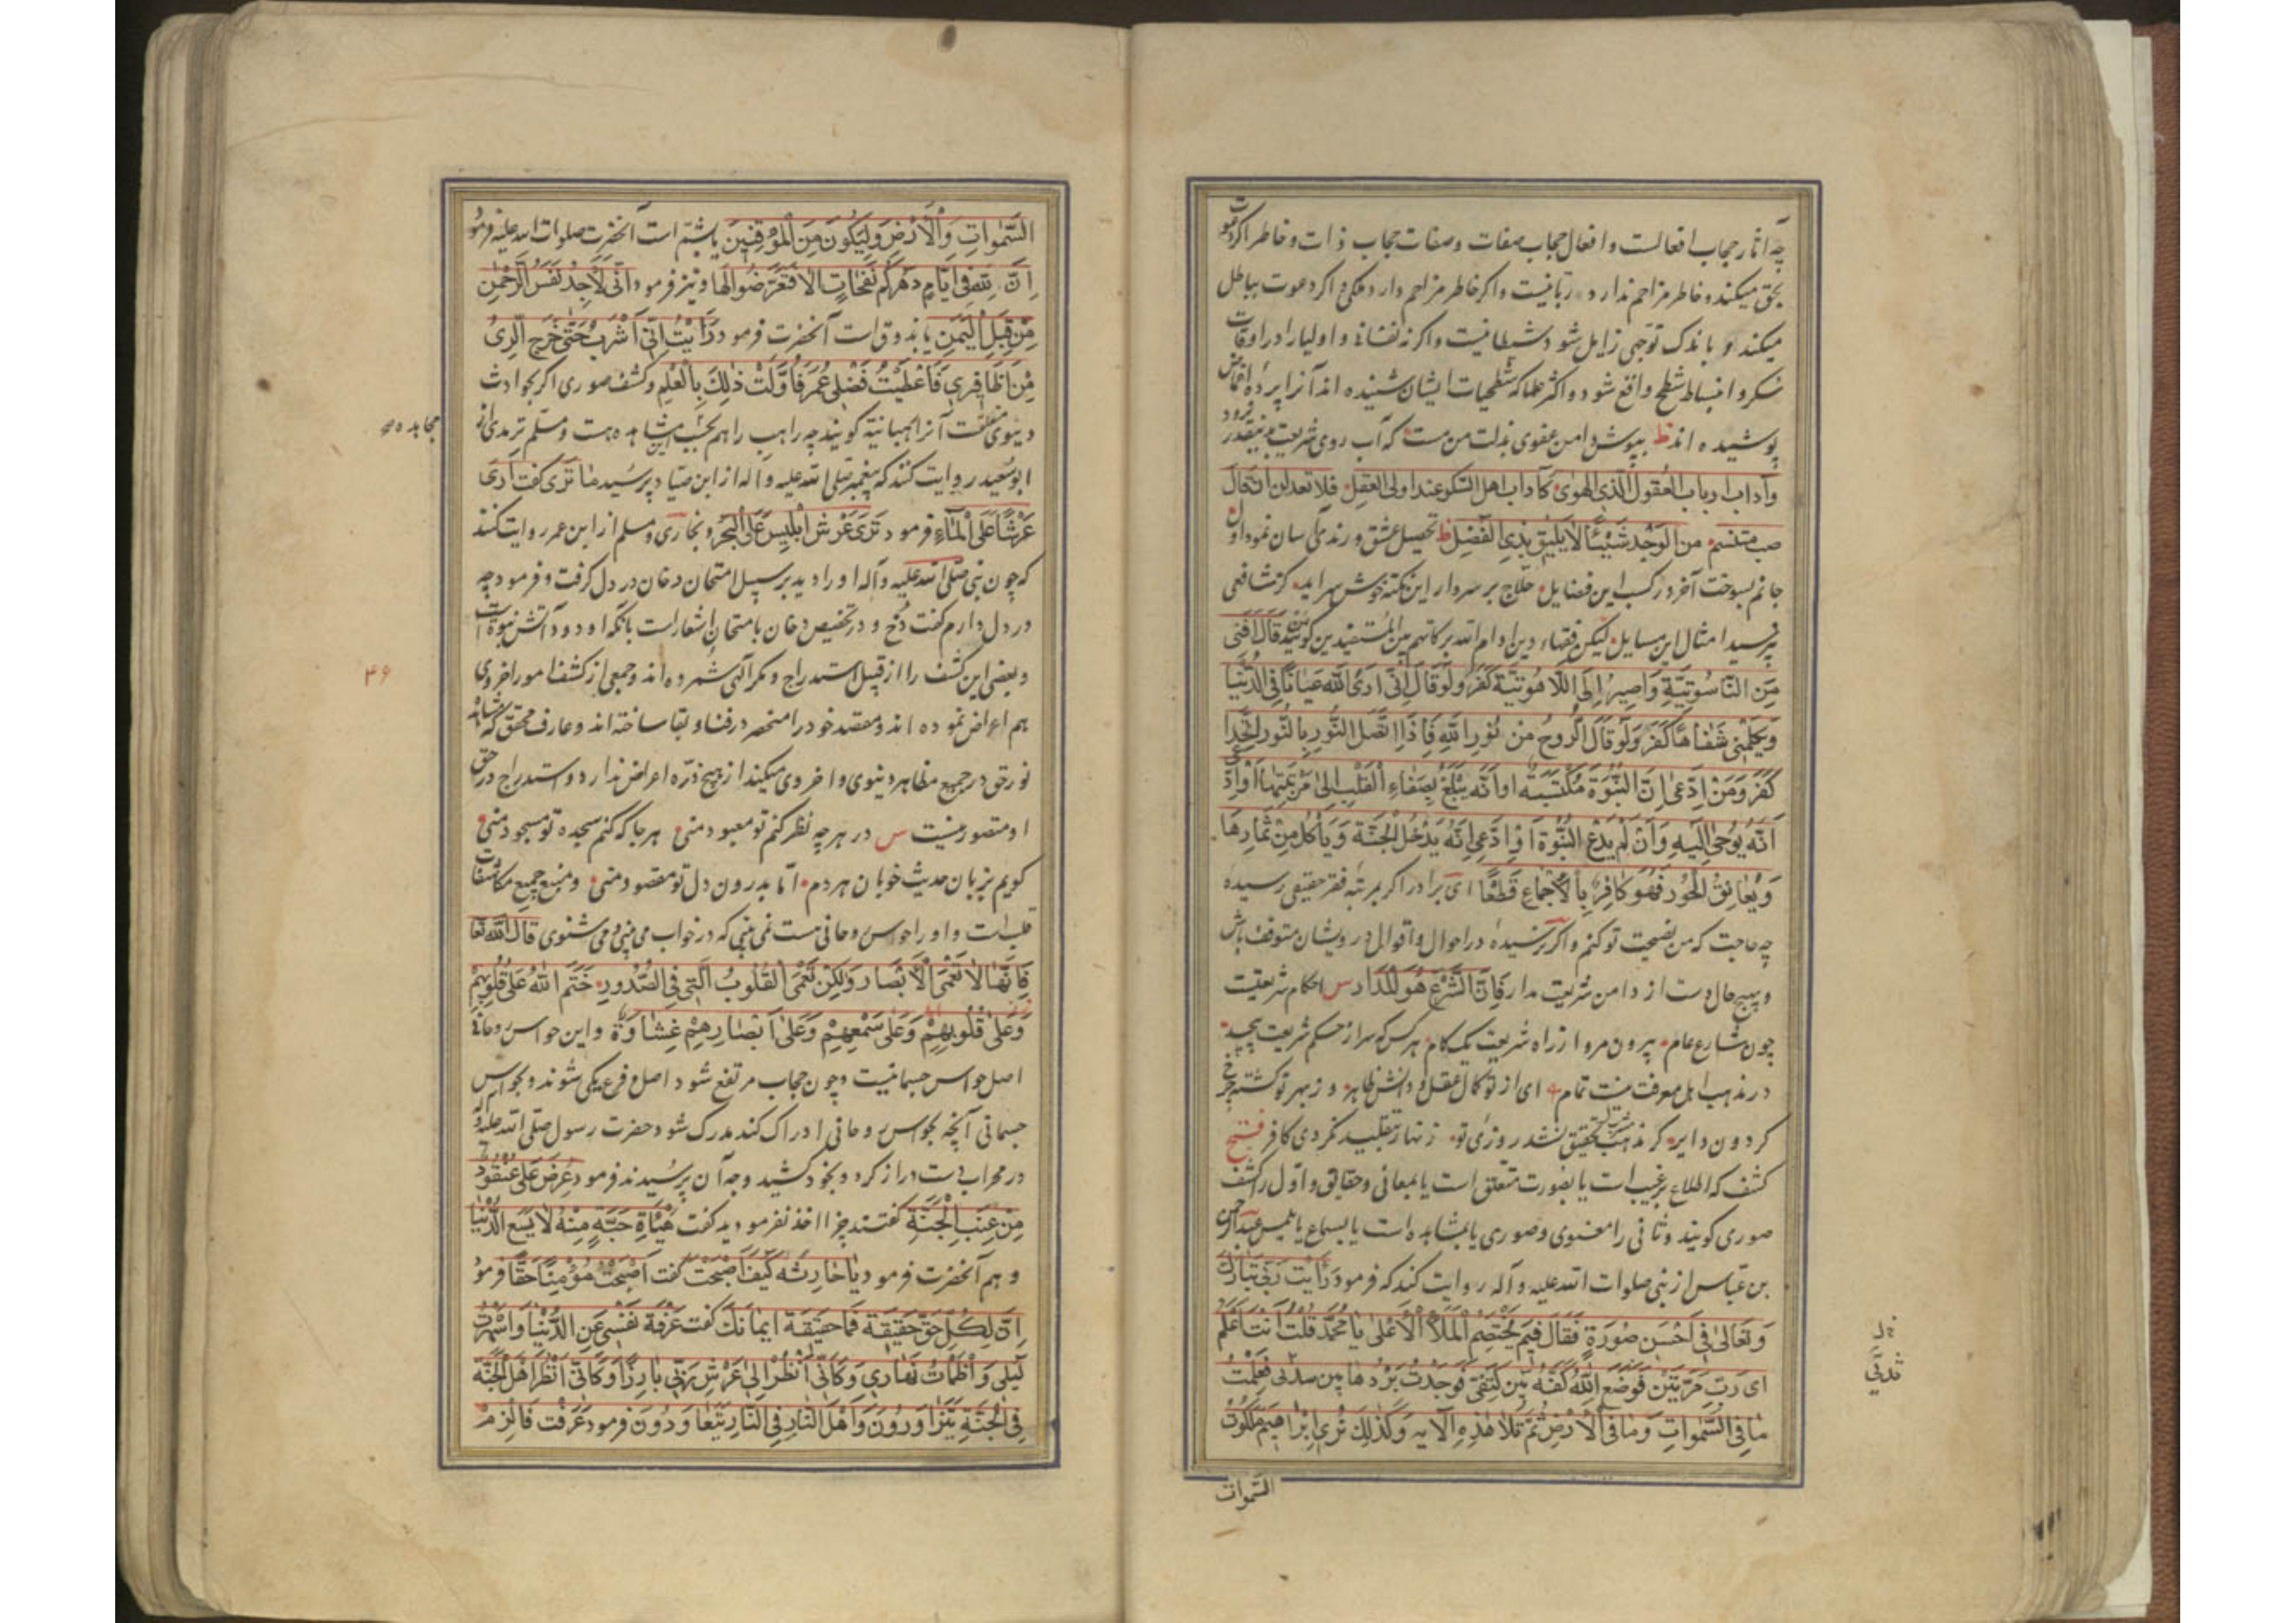 چه آثار حجاب افعالست و افعال حجاب صفات و صفات حجاب ذات و خاطر اگر دعوت
بحق میکند و خاطر مزاحم ندارد ربانیست و اگر خاطر مزاحم دارد ملکی و اگر دعوت بباطل
میکند و باندک توجهی زایل شود شیطانیست و اگر نه نفسانی و اولیا را در اوقات
سکر و انبساط شطح واقع شود و اکثر علما که شطحیات ایشان شنیده اند آنرا بپرده اغماض
پوشیده اند بپوش دامن عفوی بذلت من مست که آب روی شریعت بدینقدر نرود
وآداب ارباب العقول لذی الهوی کآداب اهل السکر عند اولی العقل فلا تعدلن ان قال
صب متسم من الوجد شیئا لا یلیق بذی الفضل تحصیل عشق و رندی آسان نمود اول
جانم بسوخت آخر در کسب این فضایل حلاج بر سر دار این نکته خوش سراید کز شافعی
پرسید امثال این مسایل لیکن فقهاء دین ادام الله برکاتهم بین المستفیدین گویند من قال افنی
من الناسوتیة واصیر الی اللاهوتیة کفر ولو قال انی اری الله عیانا فی الدنیا
ویکلمنی شفاها کفر ولو قال الروح من نور الله فاذا اتصل النور بالنور اتحدا
کفر ومن ادعی ان النبوة مکتسبة او انه یبلغ بصفاء القلب الی مرتبتها او ادعی
انه یوحی الیه وان لم یدع النبوة او ادعی انه یدخل الجنة ویأکل من ثمارها
ویعانق الحور فهو کافر بالاجماع قطعا ای برادر اگر بمرتبه فقر حقیقی رسیده
چه حاجت که من نصیحت تو کنم و اگر نرسیده در احوال و اقوال درویشان متوقف باش
و بهیچ حال دست از دامن شریعت مدار فان الشرع هو المدار س احکام شریعت
چون شارع عام بیرون مرو از راه شریعت یک گام هر کس که سر از حکم شریعت پیچید
در مذهب اهل معرفت نیست تمام ای از تو کمال عقل و دانش ظاهر وز بهر تو گشته چرخ
گردون دایر گر مذهب تحقیق نشد روزی تو زنهار بتقلید نگردی کافر فتح
کشف که اطلاع بر غیب است یا بصورت متعلق است یا بمعانی و حقایق و اول را کشف
صوری گویند و ثانی را معنوی و صوری یا بمشاهده است یا بسماع یا بلمس عبد الرحمن
بن عباس از نبی صلوات الله علیه و آله روایت کند که فرمود رأیت ربی تبارک
وتعالی فی احسن صورة فقال فیم یختصم الملأ الاعلی یا محمد قلت انت اعلم
ای رب مرتین فوضع الله کفه بین کتفی فوجدت بردها بین ثدیی فعلمت
ما فی السموات وما فی الارض ثم تلا هذه الآیه وکذلک نری ابراهیم ملکوت
السموات
ثدیی
السموات والارض ولیکون من الموقنین یا بشم است آنحضرت صلوات الله علیه فرمود
ان لله فی ایام دهرکم نفحات الا فتعرضوا لها و نیز فرمود انی لاجد نفس الرحمن
من قبل الیمن یا بذوق است آنحضرت فرمود رایت انی اشرب حتی خرج الری
من اظافیری فاعطیت فضلی عمر فاولت ذلک بالعلم و کشف صوری اگر بحوادث
دنیوی متعلقست آنرا رهبانیة گویند چه راهب را هم بحسب مشاهده هست و مسلم و ترمدی از
مجاهده
ابو سعید روایت کنند که پیغمبر صلی الله علیه و اله از ابن صیاد پرسید ما تری گفت اری
عرشا علی الماء فرمود تری عرش ابلیس علی البحر و بخاری و مسلم از ابن عمر روایت کنند
که چون نبی صلی الله علیه و آله او را دید بر سبیل امتحان دخان در دل گرفت و فرمود چه
در دل دارم گفت دخ و در تخصیص دخان بامتحان اشعار است بآنکه او دود آتش نبوت است
و بعضی این کشف را از قبیل استدراج و مکر الهی شمرده اند و جمعی از کشف امور اخروی
۴۶
هم اعراض نموده اند و مقصد خود را منحصر در فنا و بقا ساخته اند و عارف محقق که مشاهده
نور حق در جمیع مظاهر دنیوی و اخروی میکند از هیچ ذره اعراض ندارد و استدراج در حق
او متصور نیست س در هر چه نظر کنم تو معبود منی هر جا که کنم سجده تو مسجود منی
گویم بزبان حدیث خوبان هر دم اما بدرون دل تو مقصود منی و منبع جمیع مکاشفات
قلبست و او را حواس روحانی هست نمی بینی که در خواب می بینی و می شنوی قال الله تعا
فانها لا تعمی الابصار ولکن تعمی القلوب التی فی الصدور ختم الله علی قلوبهم
وعلی قلوبهم وعلی سمعهم وعلی ابصارهم غشاوة و این حواس روحانی
اصل حواس جسمانیست و چون حجاب مرتفع شود اصل و فرع یکی شوند و بحواس
جسمانی آنچه بحواس روحانی ادراک کند مدرک شود حضرت رسول صلی الله علیه و اله
در محراب دست دراز کرد و بخود کشید وجه آن پرسیدند فرمود عرض علی عنقود
من عنب الجنة گفتند چرا اخذ نفرمودید گفت حبة منه لا یسع الدنیا
و هم آنحضرت فرمود یا حارثه کیف اصبحت گفت اصبحت مؤمنا حقا فرمود
ان لکل حق حقیقة فما حقیقة ایمانک گفت عزفة نفسی عن الدنیا واسهرت
لیلی واظمات نهاری وکانی انظر الی عرش ربی بارزا وکانی انظر اهل الجنة
فی الجنة یتزاورون واهل النار فی النار یتعاودون فرمود عرفت فالزم